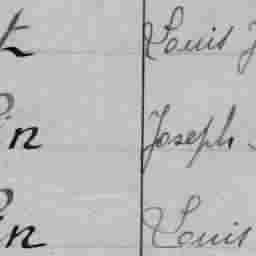 t Louis J
in Joseph
in Louis